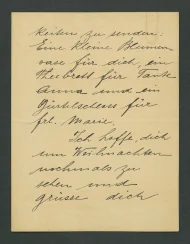 keiten zu senden.
Eine kleine Blumen
vase für dich, ein
Theebrett für Tante
Anna und ein
für
frl. Marie.
Ich hoffe, dich
um Weihnachten
nochmals zu
sehen und
grüsse dich